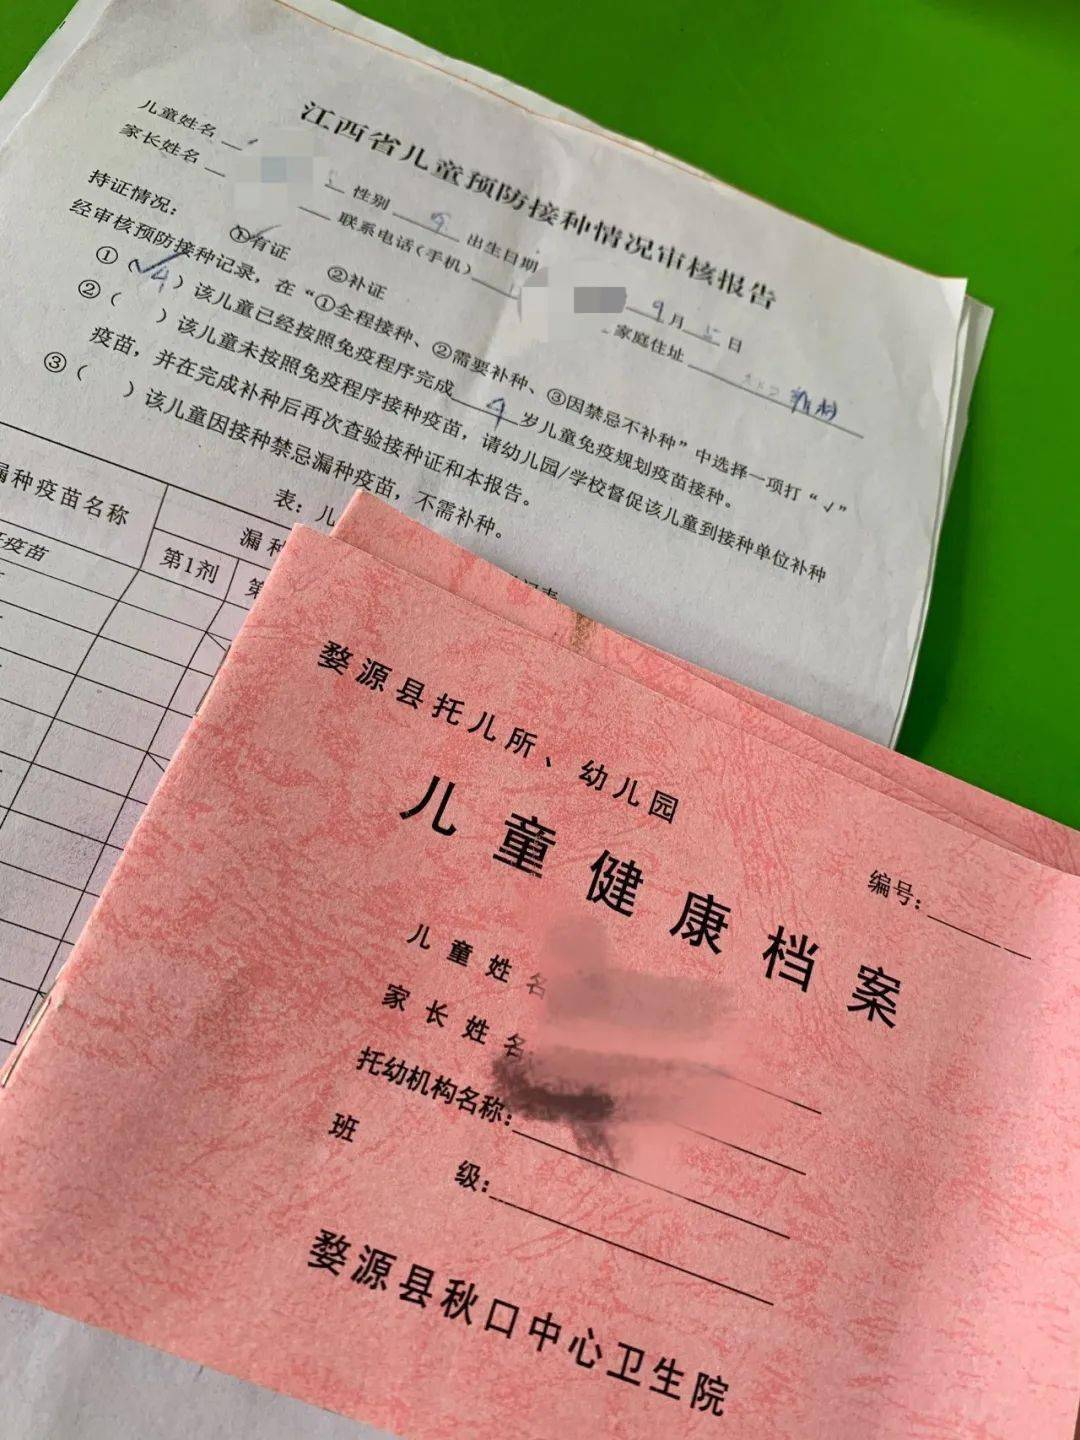 江西省儿童预防接种情况审核报告
儿童姓名 性别 出生日期 9月 日
家长姓名 联系电话(手机) 家庭住址
持证情况: ①有证 ②补证
经审核预防接种记录,在“①全程接种、②需要补种、③因禁忌不补种”中选择一项打“√”
①(√)该儿童已经按照免疫程序完成 4 岁儿童免疫规划疫苗接种。
②( )该儿童未按照免疫程序接种疫苗,请幼儿园/学校督促该儿童到接种单位补种
疫苗,并在完成补种后再次查验接种证和本报告。
③( )该儿童因接种禁忌漏种疫苗,不需补种。
表: 儿
漏种疫苗名称 漏种
第1剂 第
疫苗
婺源县托儿所、幼儿园
儿童健康档案
编号:
儿童姓名
家长姓名
托幼机构名称:
班 级:
婺源县秋口中心卫生院